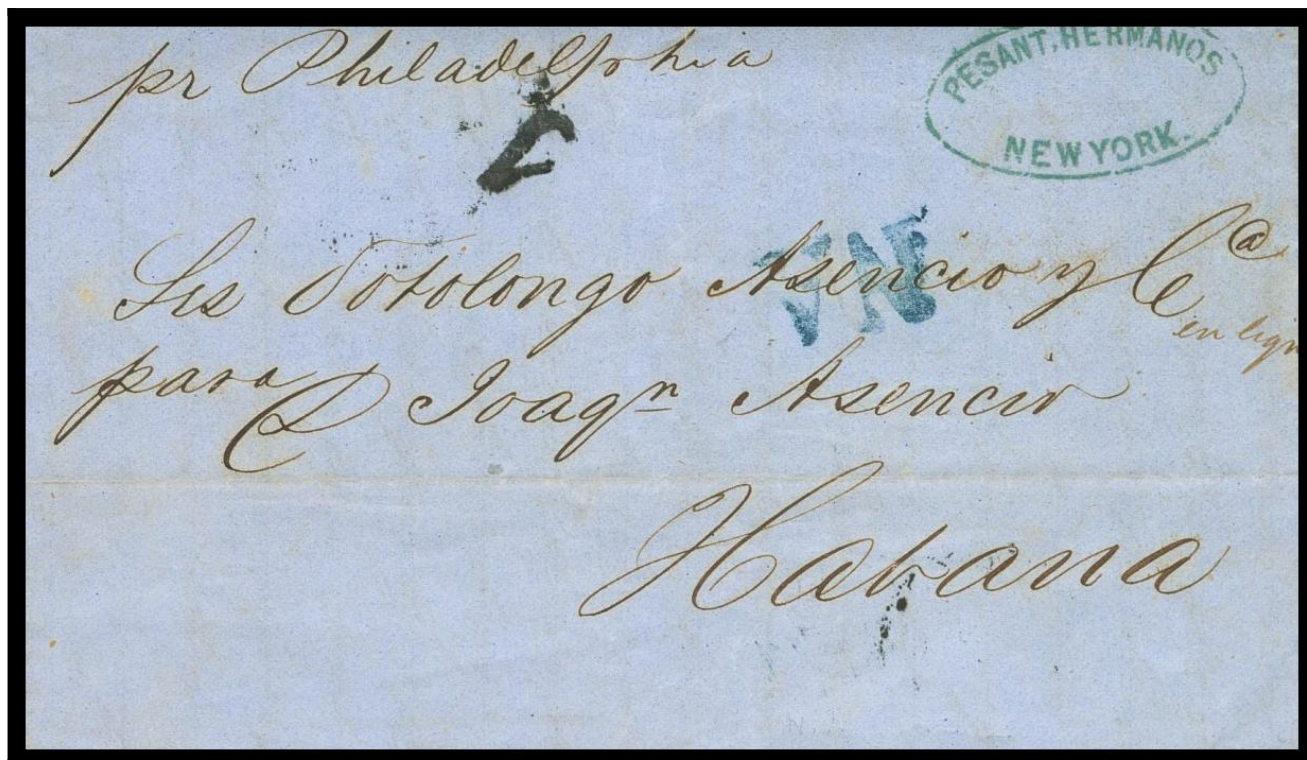 pr Philadelphia
PESANT, HERMANOS
NEW YORK.
2
NA
Srs Sotolongo Asencio y Ca
en liqn
para D Joaqn Asencio
Habana